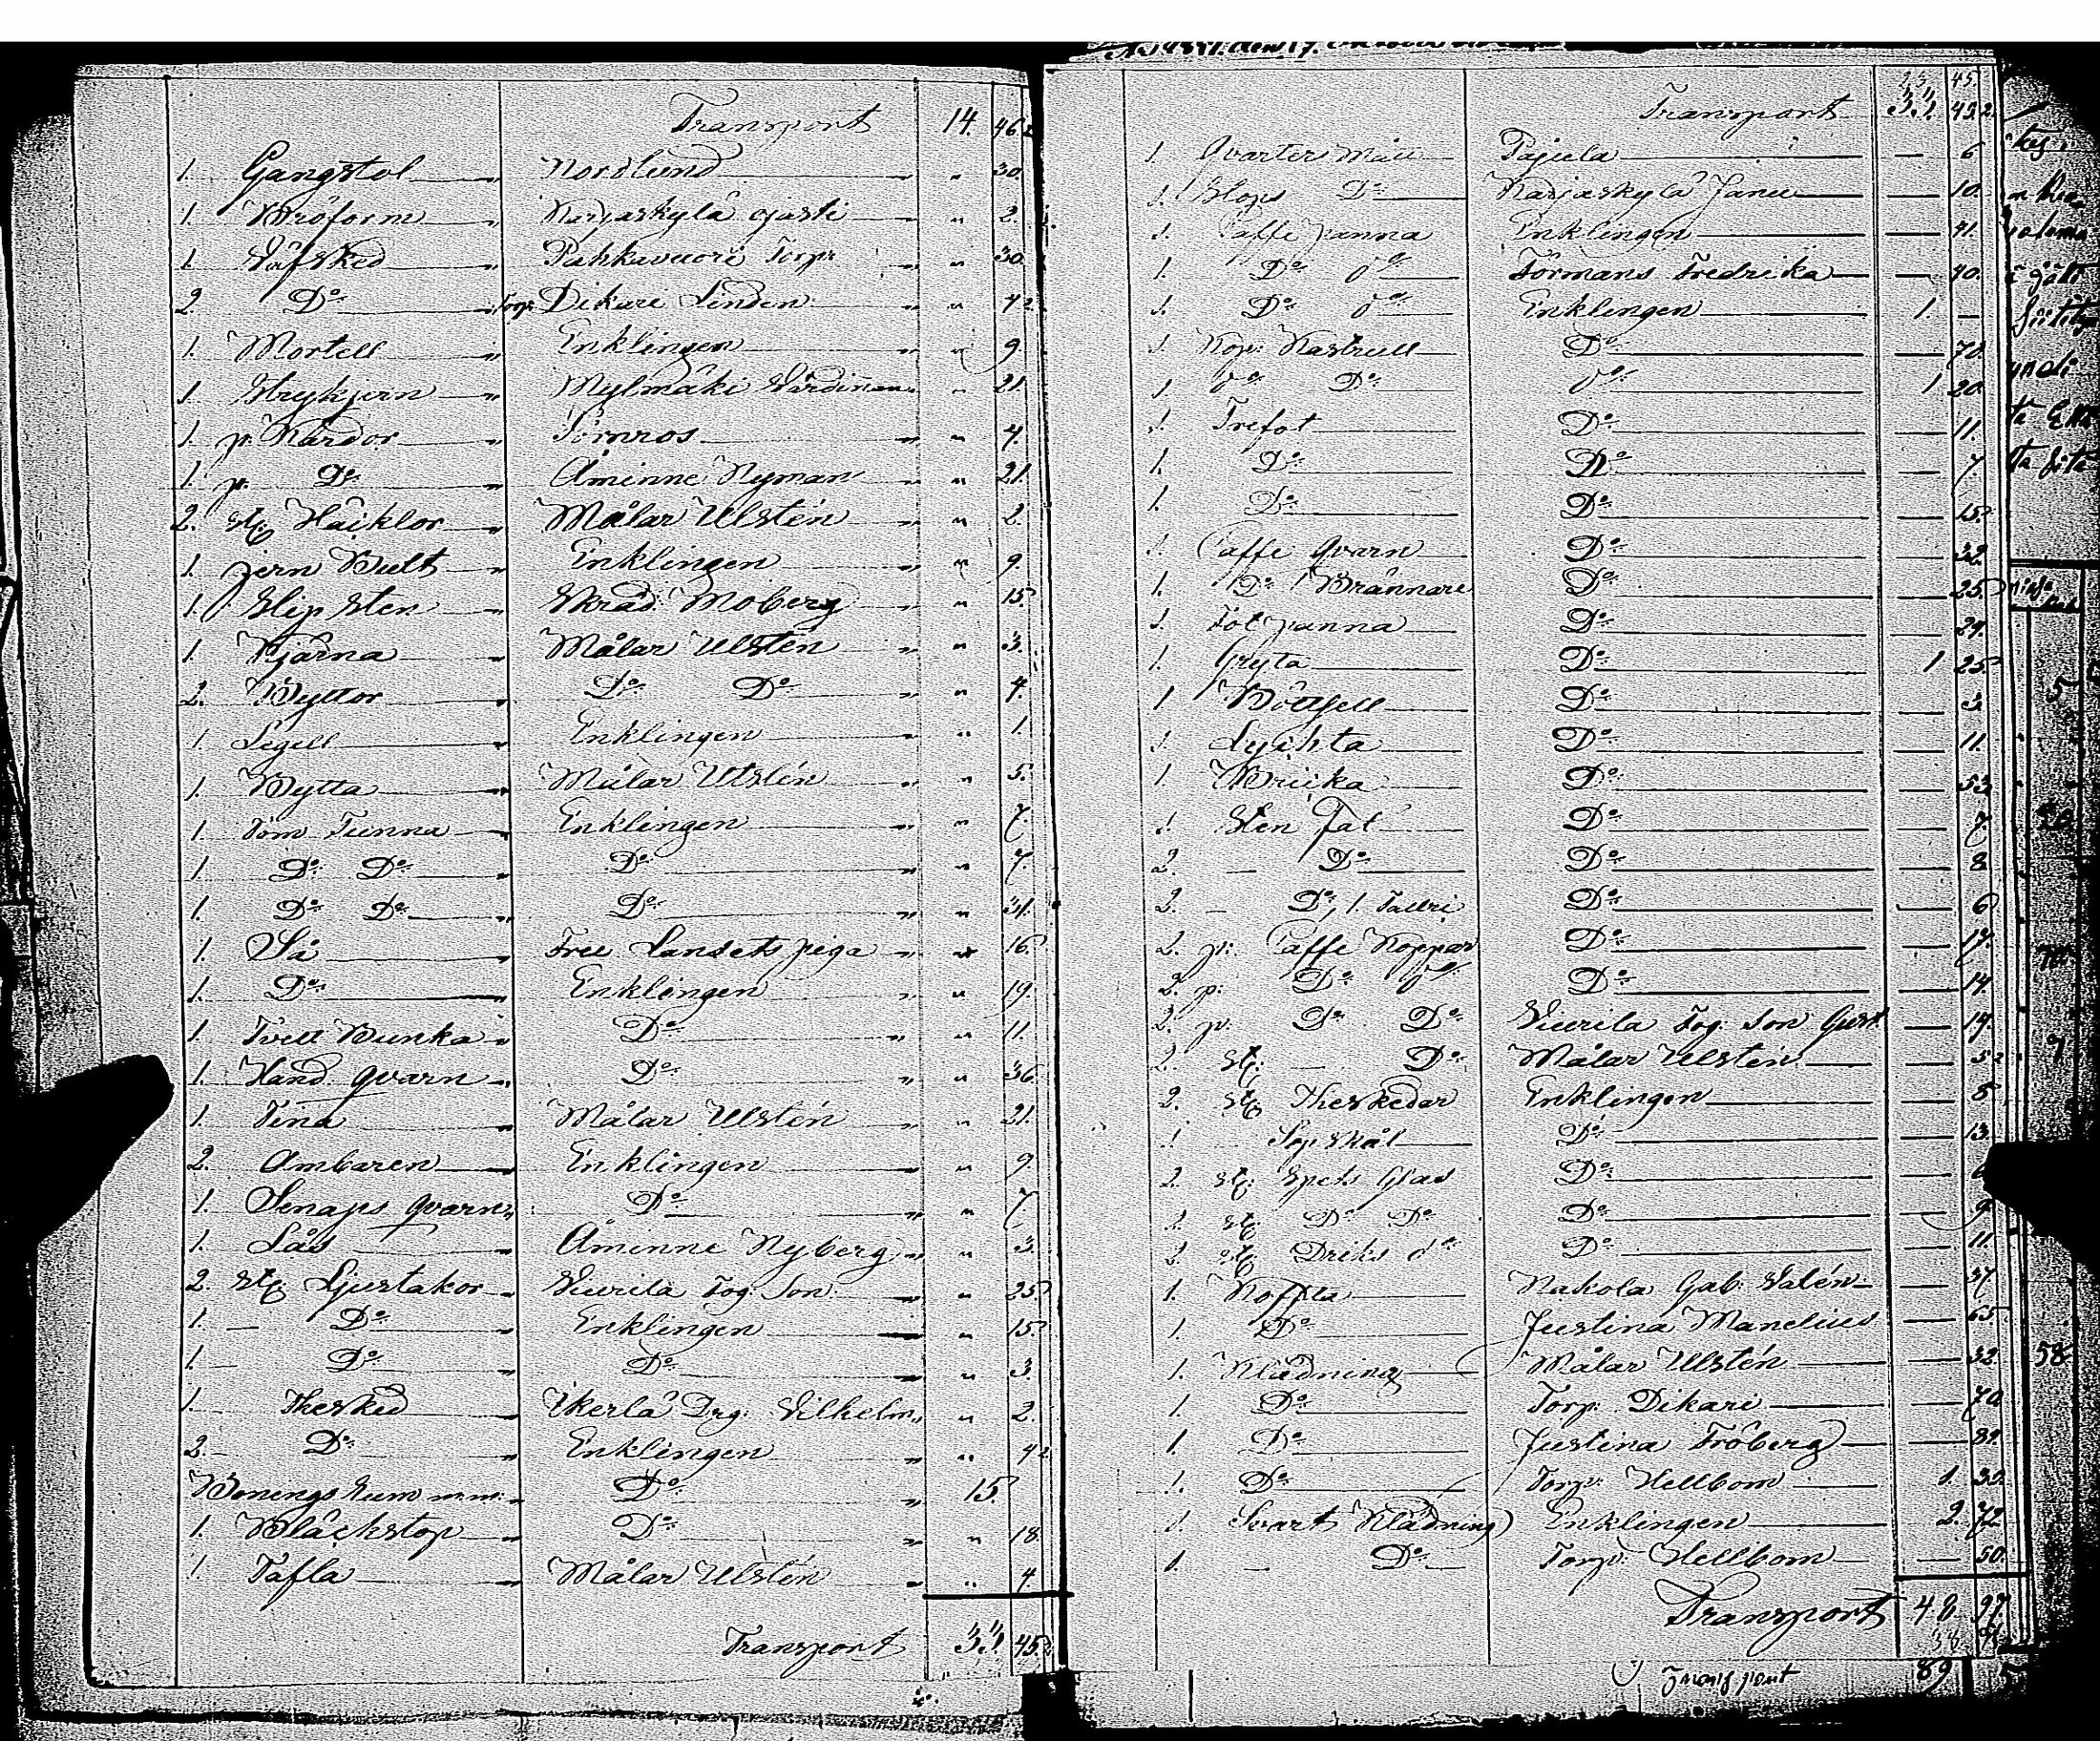 Transport 14. 46.
1. Gangstol Nordlund " 30.
1. Bröform Karjaskylä ojasti " 2.
1. Väfsked Pahkavuori Torp: " 30.
2. Do Torp: Dikari Linden " 4 2
1. Mortell Enklingen " 9.
1. Strykjern Mylmäki Värdinnan " 21.
1. pr Kardor Törnros " 4.
1. pr Do Åminne Nyman " 21.
2. st: Häcklor Målar Ulstén " 2.
1. jern Bult Enklingen " 9.
1. Slip Sten Skräd: Moberg " 15.
1. Kjärna Målar Ulstén " 3.
2. Byttor Do Do " 4.
1. Segell Enklingen " 1.
1. Bytta Målar Ulstén " 5.
1. Tom Tunna Enklingen " 7.
1. Do Do Do " 7.
1. Do Do Do " 31.
1. Så Free Lansets piga " 16.
1. Do Enklingen " 19.
1. Tvett Bunka Do " 11.
1. Hand qvarn Do " 36.
1. Tina Målar Ulstén " 21.
2. Ambaren Enklingen " 9.
1. Senaps qvarn Do " 7.
1. Lås Åminne Nyberg " 3.
2. st: Ljustakor Viurila Fog: Son " 25.
1. — Do Enklingen " 15.
1. — Do Do " 3.
1. Thesked Ykerlä Drg: Vilhelm " 2.
2. — Do Enklingen " 4 2
Bonings Rum m.m. Do 15.
1. Bläckstop Do " 18.
1. Tafla Målar Ulstén " 4
Transport 33 45.
23 45
Transport 33. 45. 2
1. Qvarter Mått Pajula — 6
1. Stops Do Karjaskylä Janne — 10.
1. Caffe panna Enklingen — 41.
1. Do do Förmans Fredrika — 40.
1. Do do Enklingen 1 —
1. Kop: Kastrull Do — 70.
1. do Do do 1 20.
1. Trefot Do — 11.
1. Do Do — 7.
1. Do Do — 15.
1. Caffe Qvarn Do — 32.
1. Do Brännare Do — 25.
1. Fot panna Do — 29.
1. Gryta Do 1 25
1 Do — 3.
1. Lyckta Do — 11.
1. Bricka Do — 53.
1. Sten Fat Do — 7.
2. — Do Do — 8
2. — Do, 1. Tallri Do — 6
2. pr: Caffe Koppar Do — 17.
2. p: Do do Do — 14.
2. pr: Do Do Viurila Fog: Son Gust. — 14.
2 st: — Do Målar Ulstén — 5 2
2. st: Theskedar Enklingen — 5
1 — Sop Skål Do — 13.
2. st: Spets Glas Do —
1. st: Do Do Do — 9
2 st: Driks do Do — 11.
1. Kofta Nakola Gab: Valén — 37.
1. Do Justina Manelius — 65
1. Klädning Målar Ulstén — 32
1. Do Torp: Dikari — 70
1. Do Justina Fröberg — 81.
1. Do Torp: Hellbom 1. 30.
1. Svart Klädning Enklingen 2. 72
1. — Do Torp: Hellbom — 50.
Transport 48 97.
38 97
Transport 89